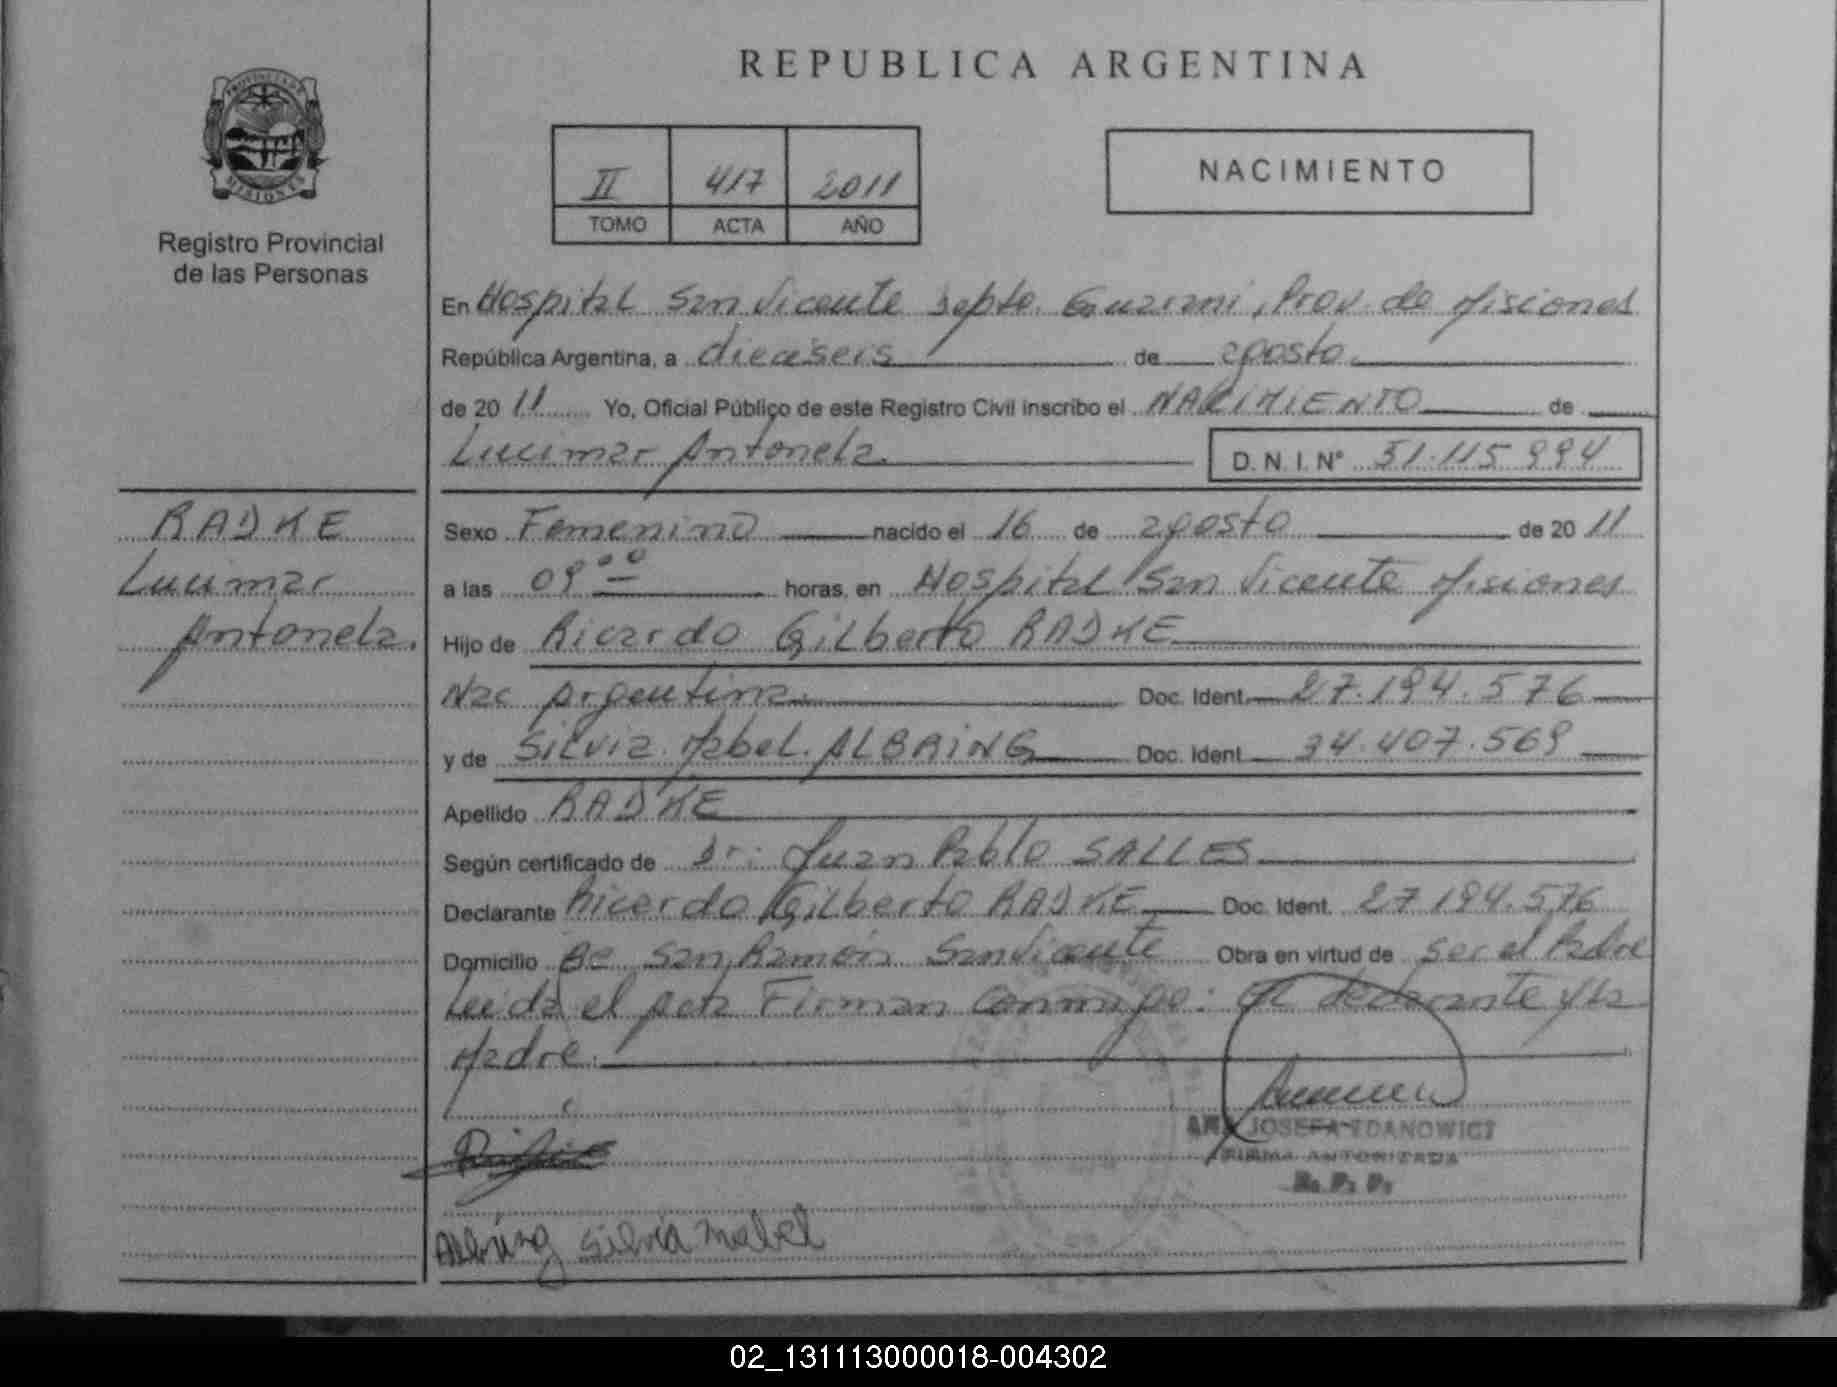 REPUBLICA ARGENTINA
PROVINCIA DE
MISIONES
Registro Provincial
de las Personas
II 417 2011
TOMO ACTA AÑO
NACIMIENTO
En Hospital San Vicente Depto. Guarani, Prov. de Misiones
República Argentina, a dieciseis de agosto
de 20 11 Yo, Oficial Público de este Registro Civil inscribo el NACIMIENTO de
Lucimar Antonela D. N. I. Nº 51.115.994
RADKE
Lucimar
Antonela.
Sexo Femenino nacido el 16 de agosto de 20 11
a las 09 00 horas, en Hospital San Vicente Misiones
Hijo de Ricardo Gilberto RADKE
Nac Argentina. Doc. Ident. 27.194.576
y de Silvia Mabel ALBRING Doc. Ident 34.407.569
Apellido RADKE
Según certificado de Dr: Juan Pablo SALLES
Declarante Ricardo Gilberto RADKE Doc. Ident. 27.194.576
Domicilio Bº San Ramón San Vicente Obra en virtud de ser el Padre
Leida el acta Firman conmigo: el declarante y la
Madre.
JOSEFA ZDANOWICZ
FIRMA AUTORIZADA
R. P. P.
Albring Silvia Mabel
02_131113000018-004302